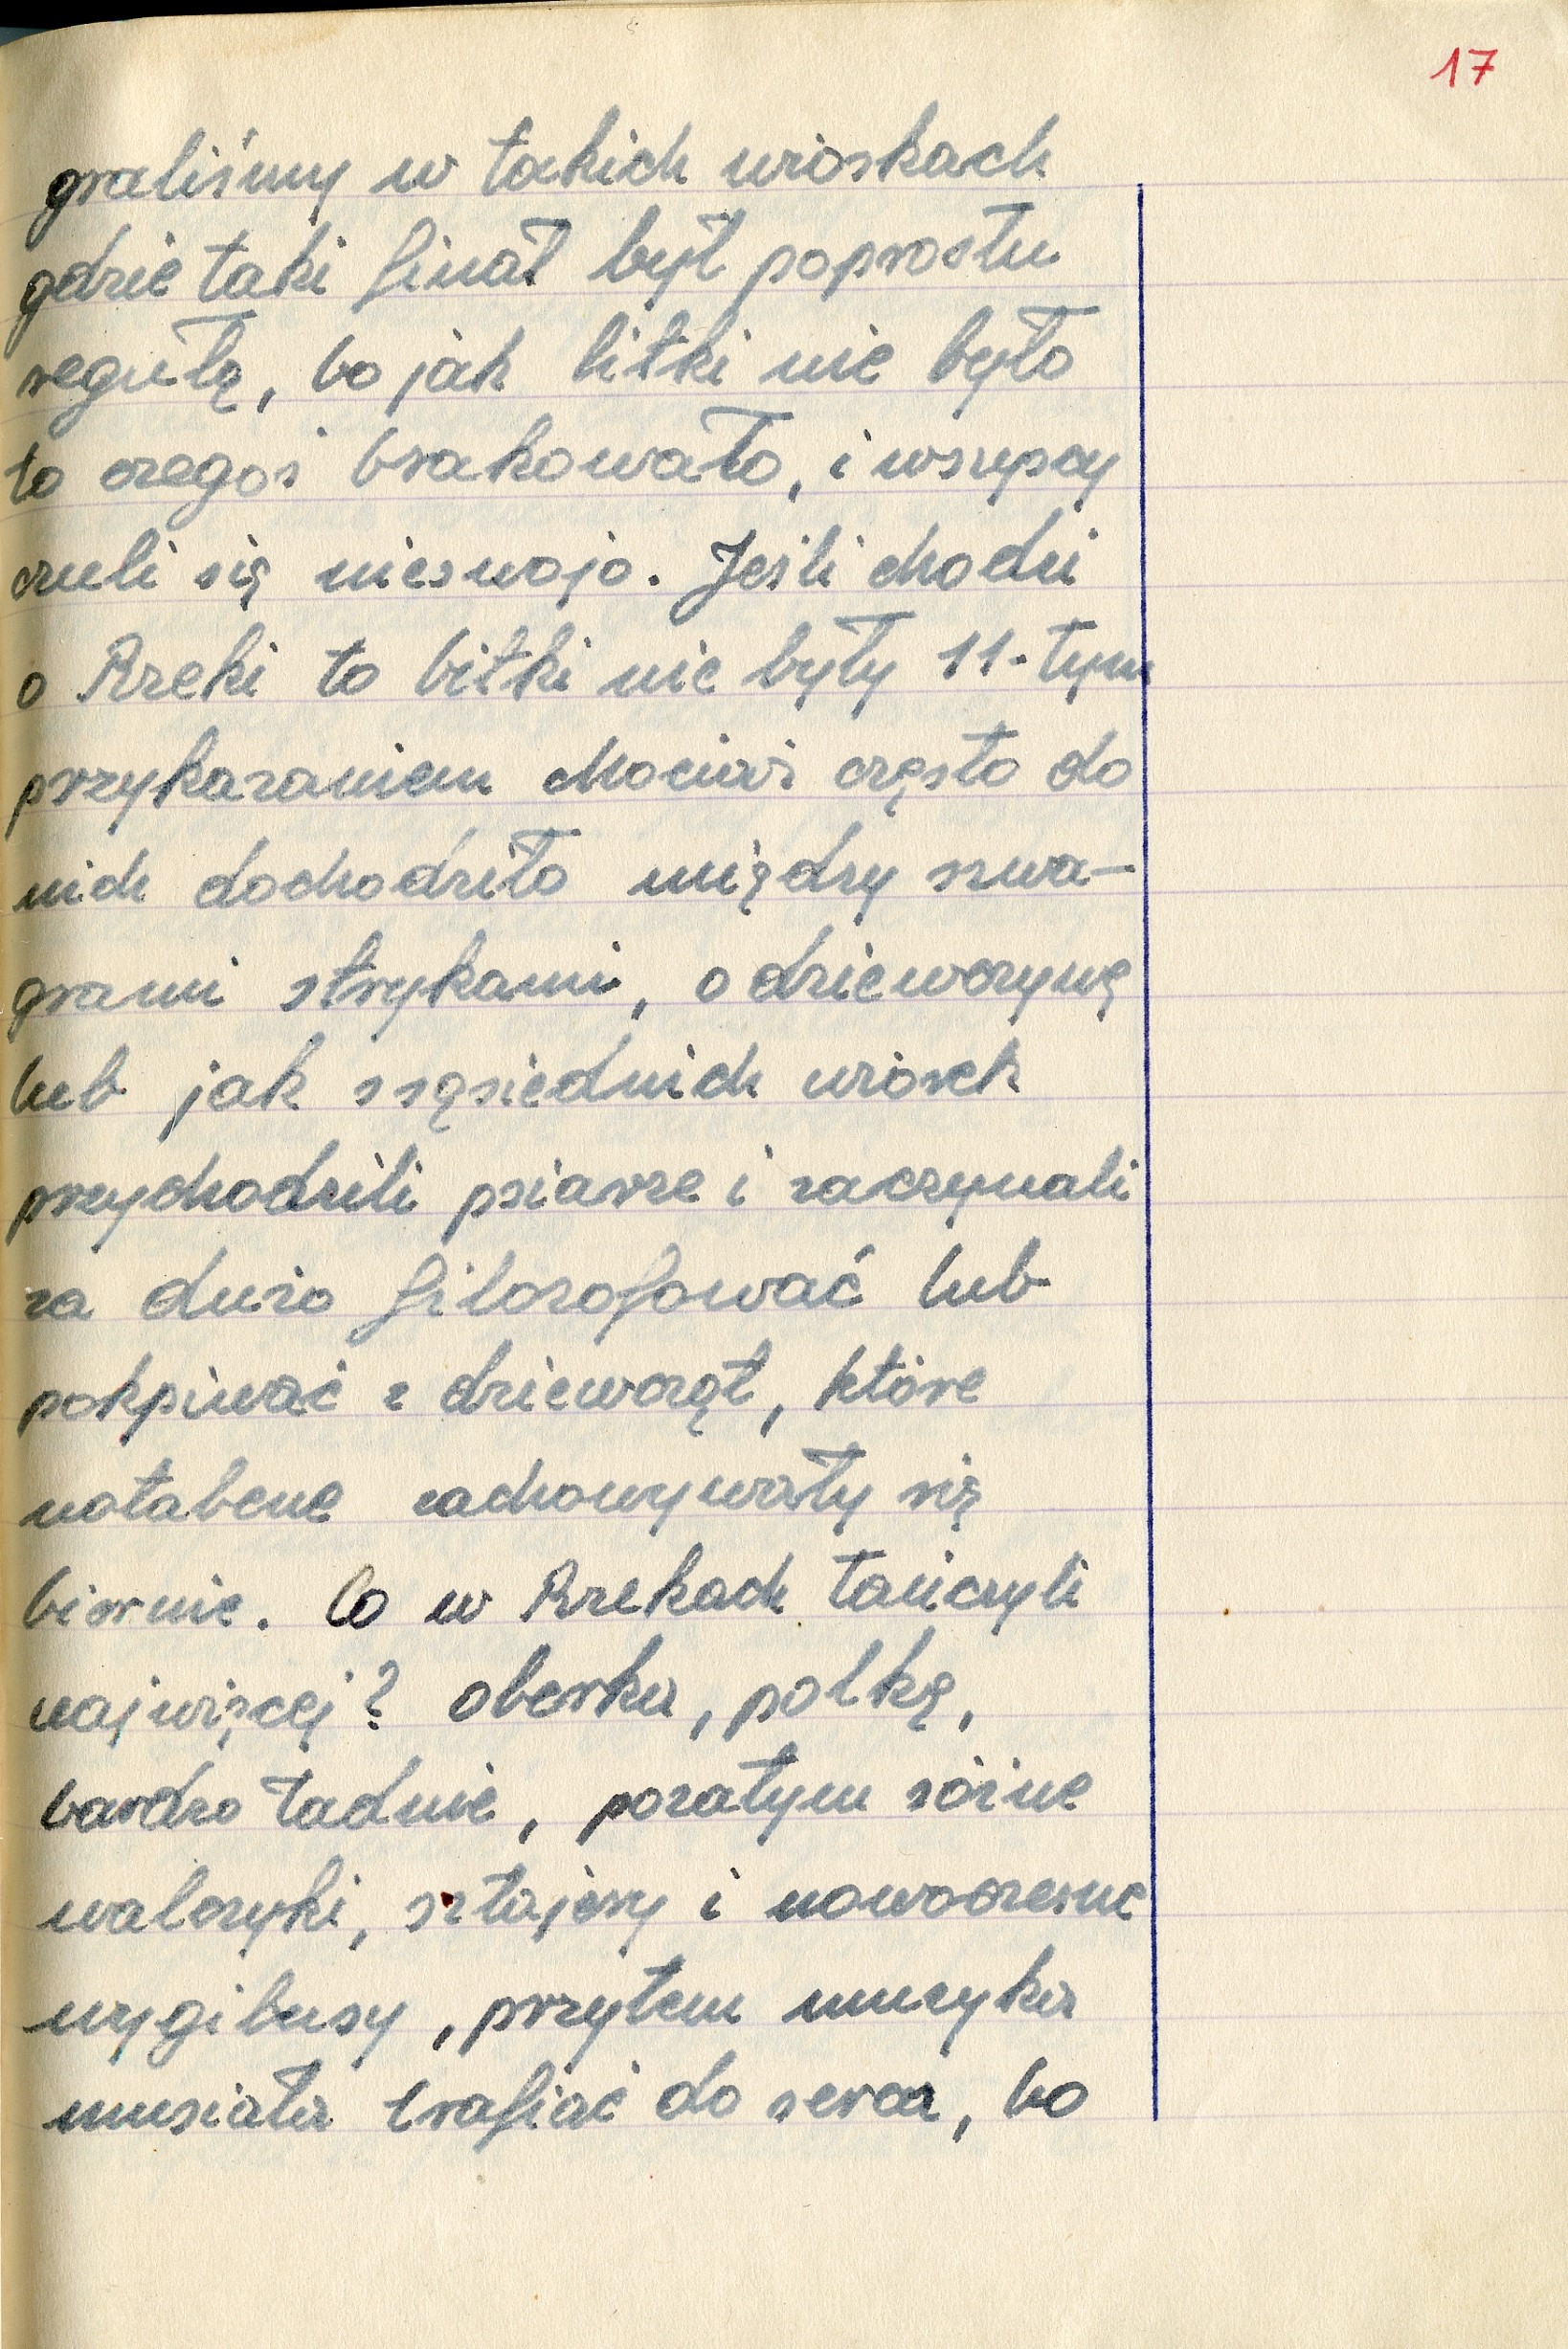 17
graliśmy w takich wioskach
gdzie taki finał był poprostu
regułą, bo jak bitki nie było
to czegoś brakowało, i wszyscy
czuli się nieswojo. Jeśli chodzi
o Rzeki to bitki nie były 11-tym
przykazaniem chociaż często do
nich dochodziło między szwa-
grami strykami, o dziewczynę
lub jak z sąsiednich wiosek
przychodzili psiarze i zaczynali
za dużo filozofować lub
pokpiwać z dziewcząt, które
notabene zachowywały się
biernie. Co w Rzekach tańczyli
najwięcej? oberka, polkę,
bardzo ładnie, pozatym różne
walczyki, sztajery i nowoczesne
wygibusy, przytem muzyka
musiała trafiać do serca, bo